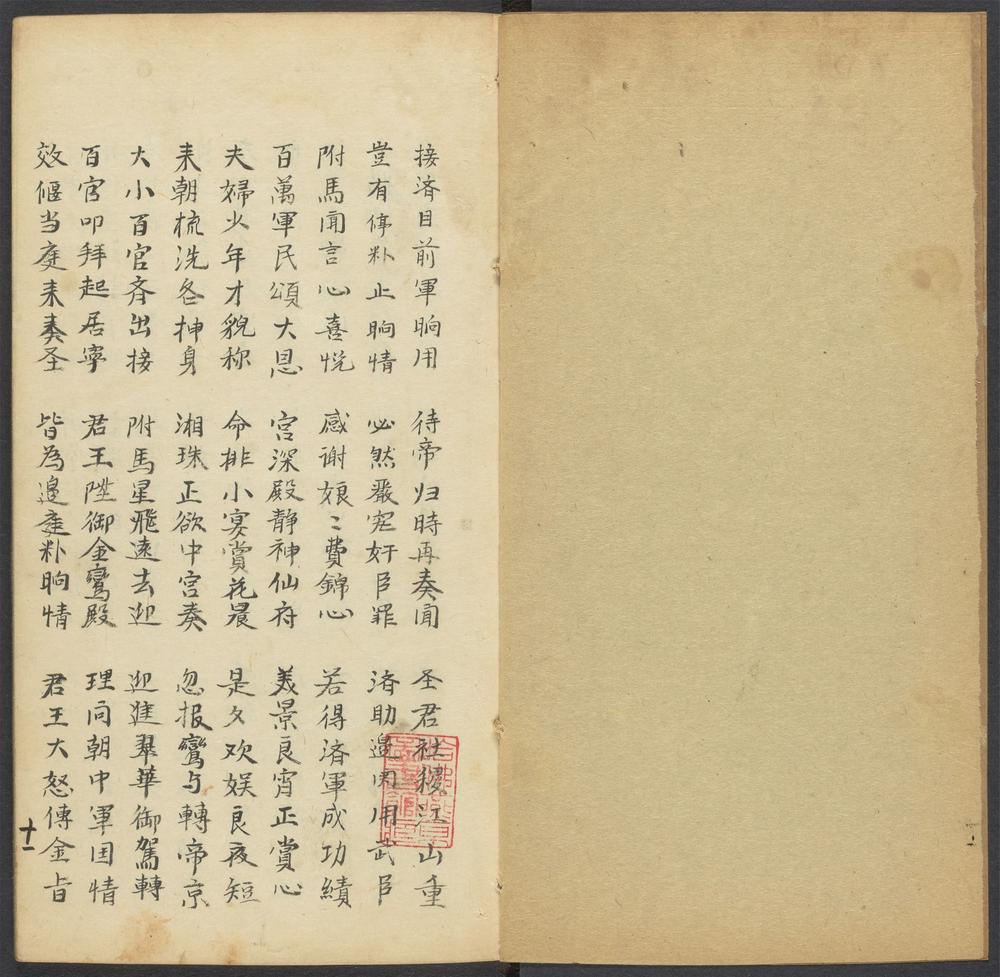 接济目前軍晌用　待帝归時再奏闻　圣君社稷江山重
豈有停粆止晌情　必然嚴究奸臣罪　済助邉関用武臣
附馬闻言心喜悦　感谢娘〻費錦心　若得済軍成功績
百萬軍民頌大恩　宫深殿静神仙府　美景良宵正賞心
夫婦少年才貌称　命排小宴賞花晨　是夕欢娱良夜短
来朝梳洗各抻身　湘珠正欲中宫奏　忽报鸞与轉帝京
大小百官斉出接　附馬星飛速去迎　迎進翠華御駕轉
百官叩拜起居寧　君王陞御金鸞殿　理问朝中軍国情
效偃当庭来奏圣　皆為邉庭粆晌情　君王大怒傳金旨
十一